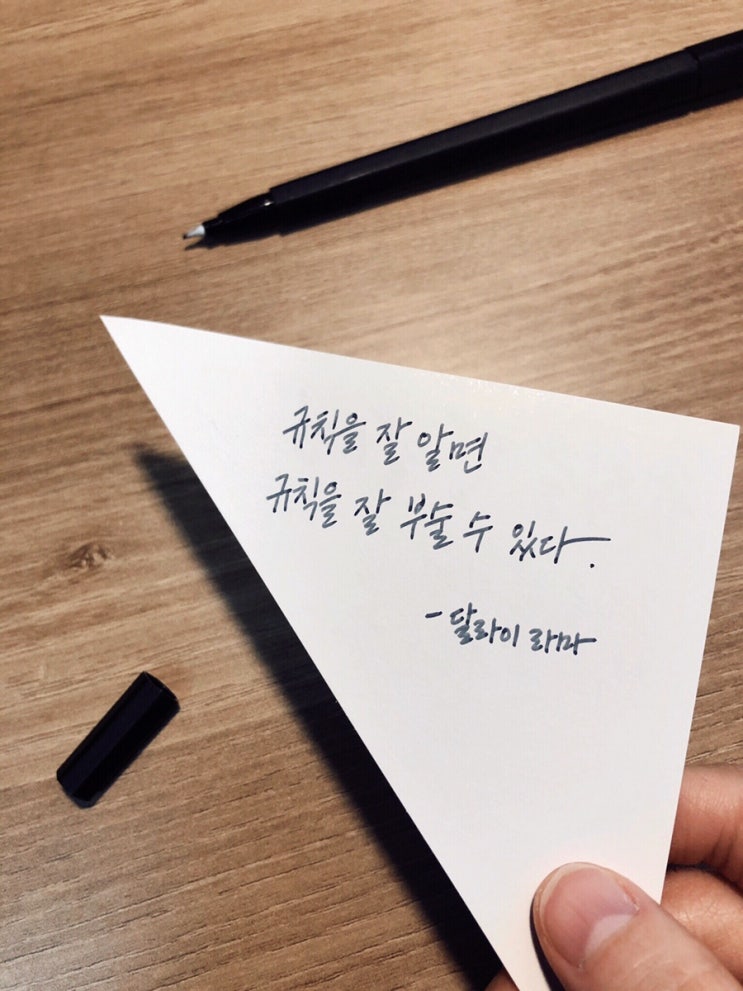 규칙을 잘 알면
규칙을 잘 부술 수 있다.
- 달라이 라마